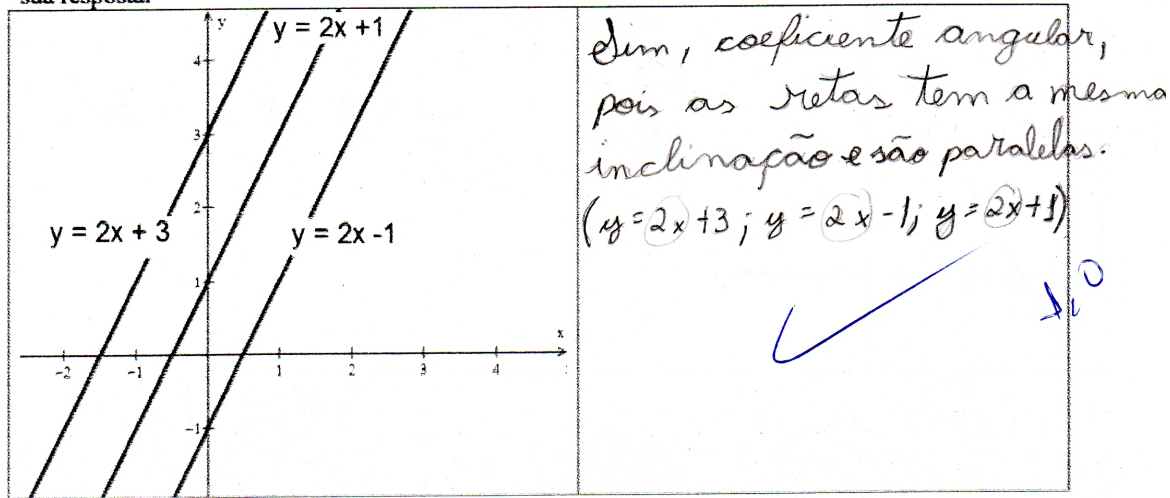 sua resposta.
y
y = 2x +1
4
3
2
y = 2x + 3
y = 2x -1
1
x
-2
-1
1
2
3
4
-1
Sim, coeficiente angular,
pois as retas tem a mesma
inclinação e são paralelas.
(y=2x+3; y=2x-1; y=2x+1)
1,0